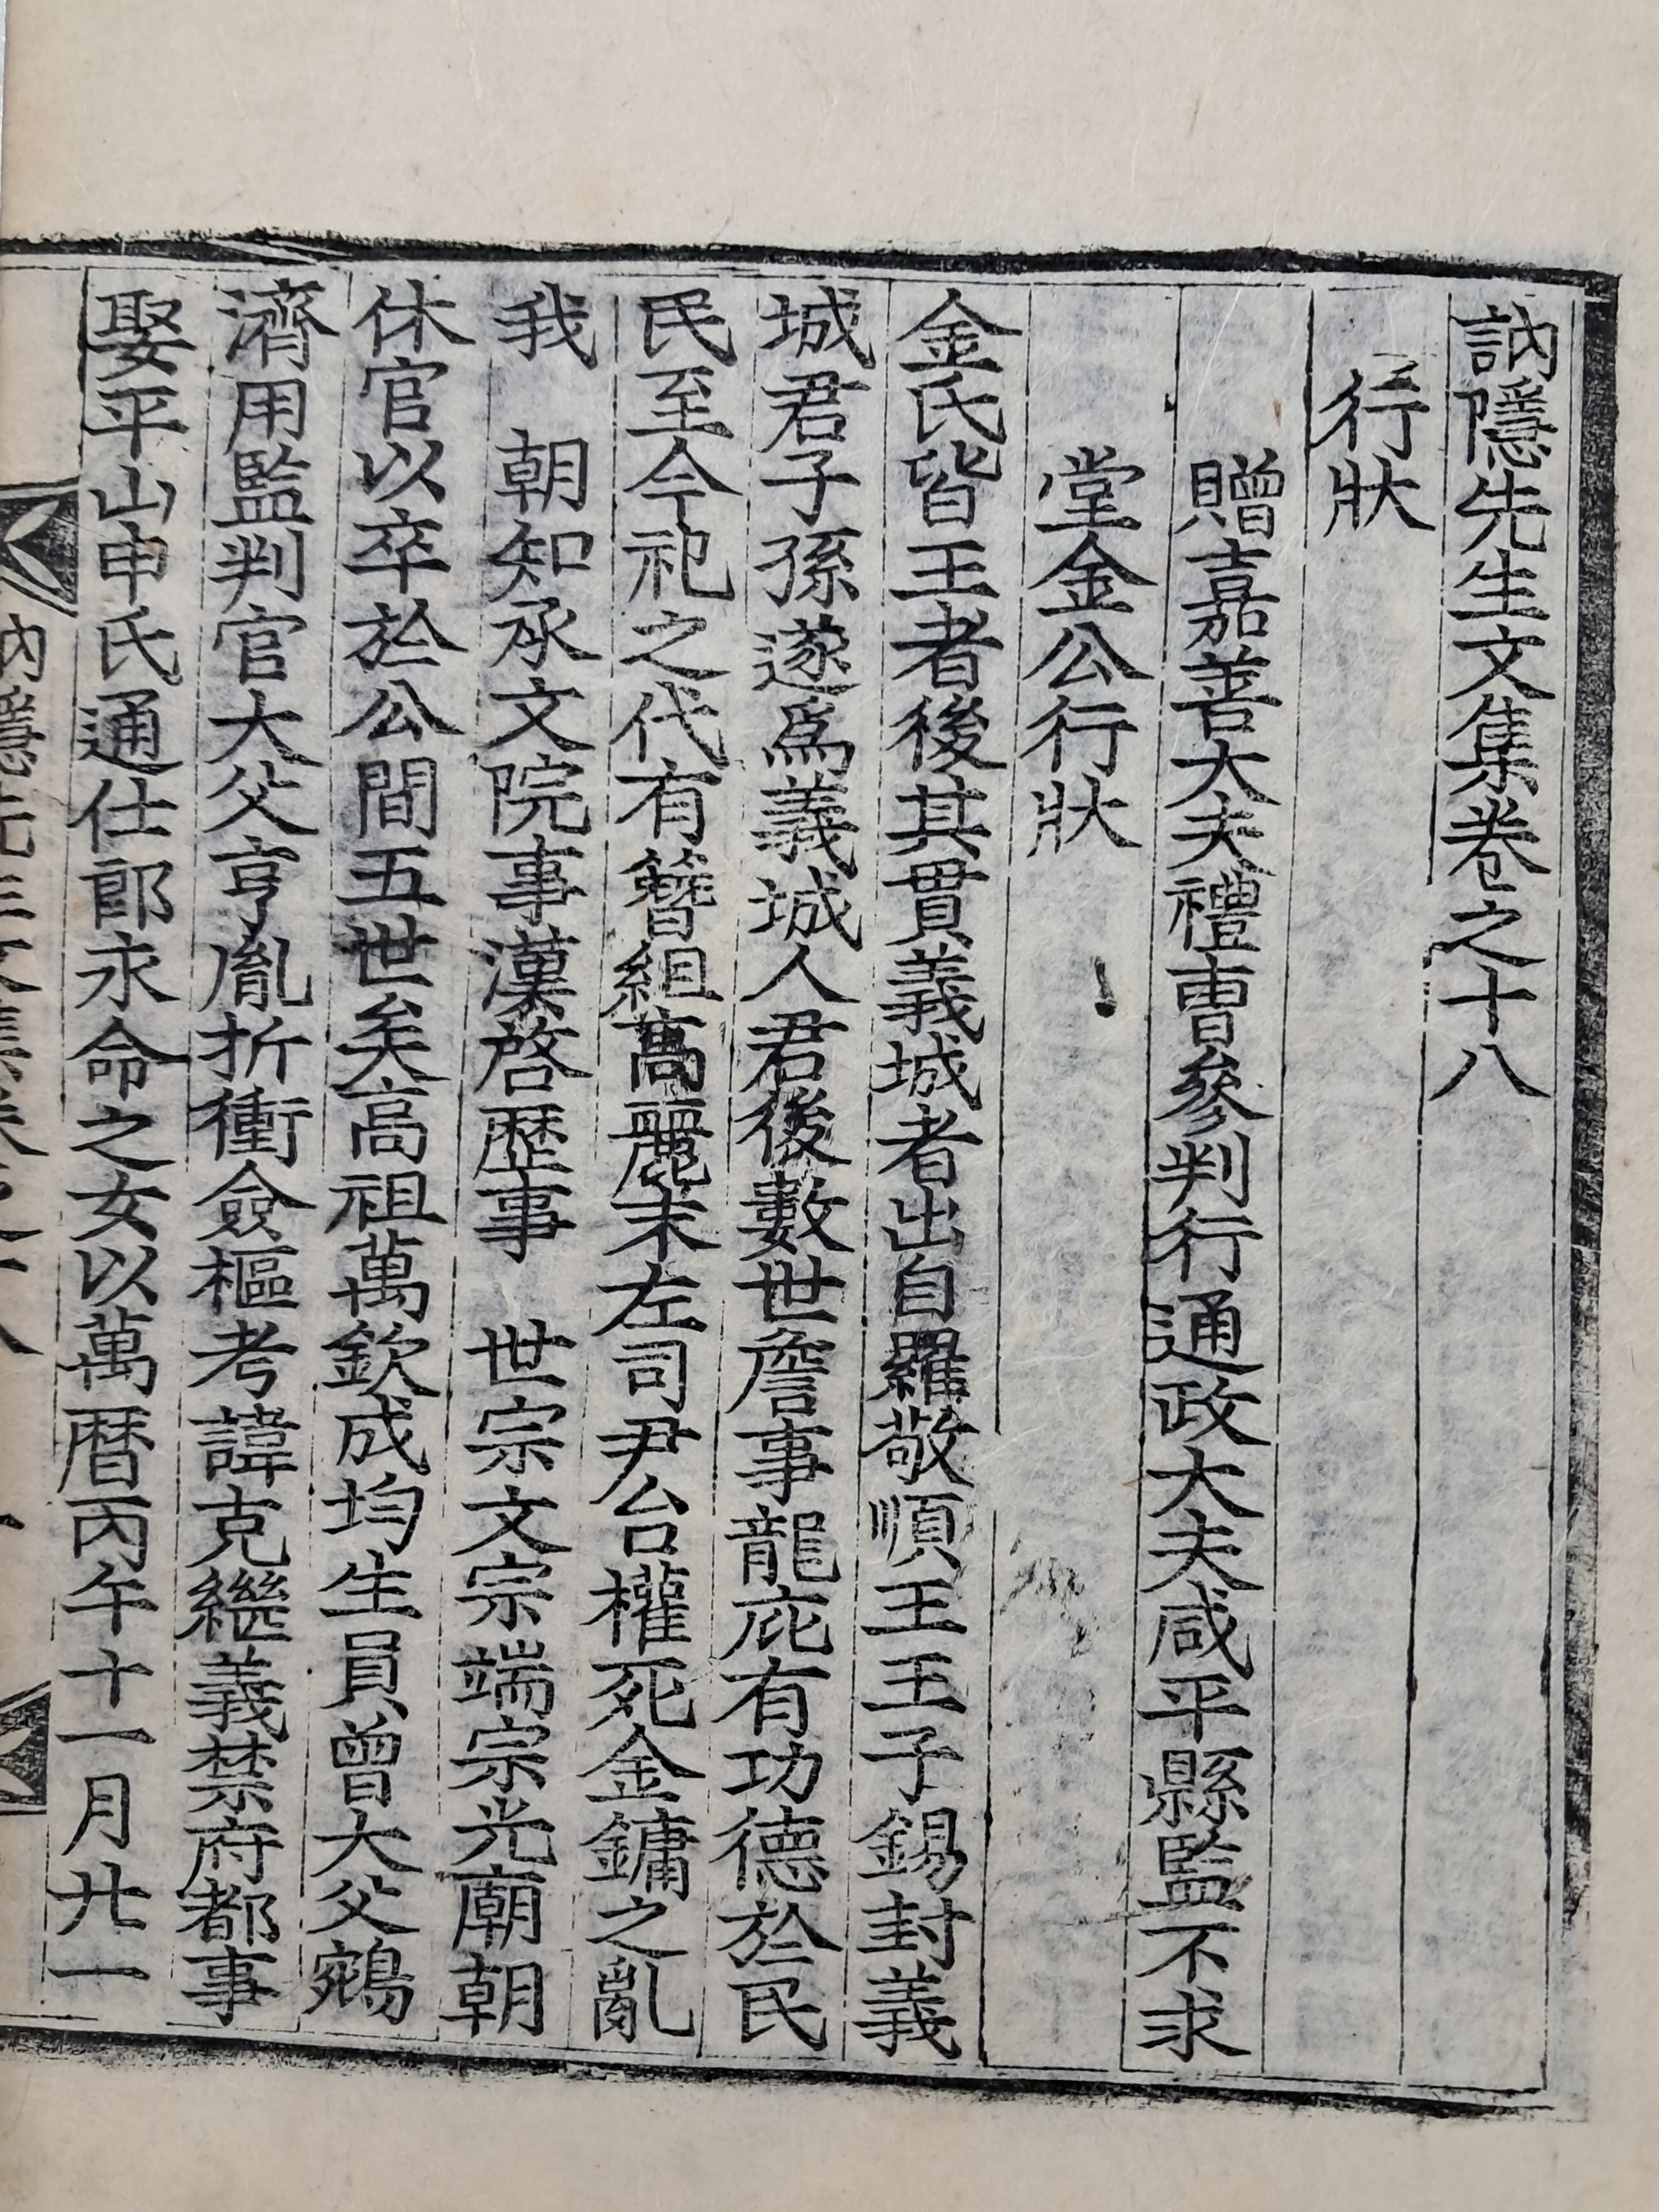 訥隱先生文集卷之十八
行狀
贈嘉善大夫禮曹參判行通政大夫咸平縣監不求
堂金公行狀
金氏皆王者後其貫義城者出自羅敬順王王子錫封義
城君子孫遂爲義城人君後數世詹事龍庇有功德於民
民至今祀之代有簪組高麗末左司尹台權死金鏞之亂
我 朝知承文院事漢啓歷事 世宗文宗端宗光廟朝
休官以卒於公間五世矣高祖萬欽成均生員曾大父鵷
濟用監判官大父亨胤折衝僉樞考諱克繼義禁府都事
娶平山申氏通仕郎永命之女以萬曆丙午十一月廿一